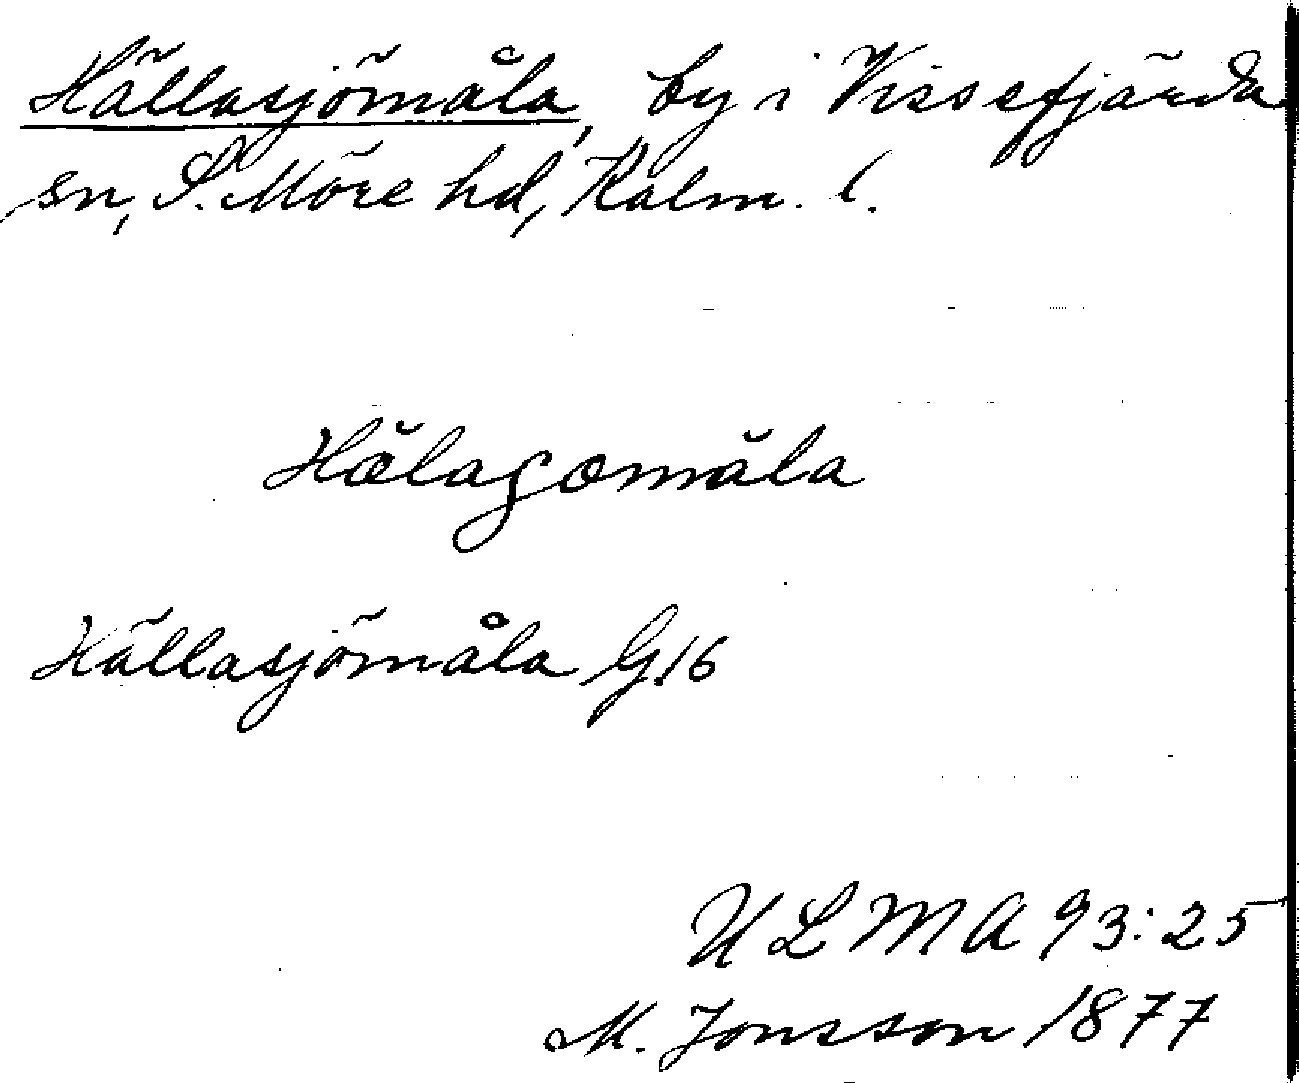 Hällasjömåla, by i Vissefjärda
sn, S. Möre hd, Kalm. l.
Hălaʃomăla
Hällasjömåla G16
ULMA 93:25
M. Jonsson 1877